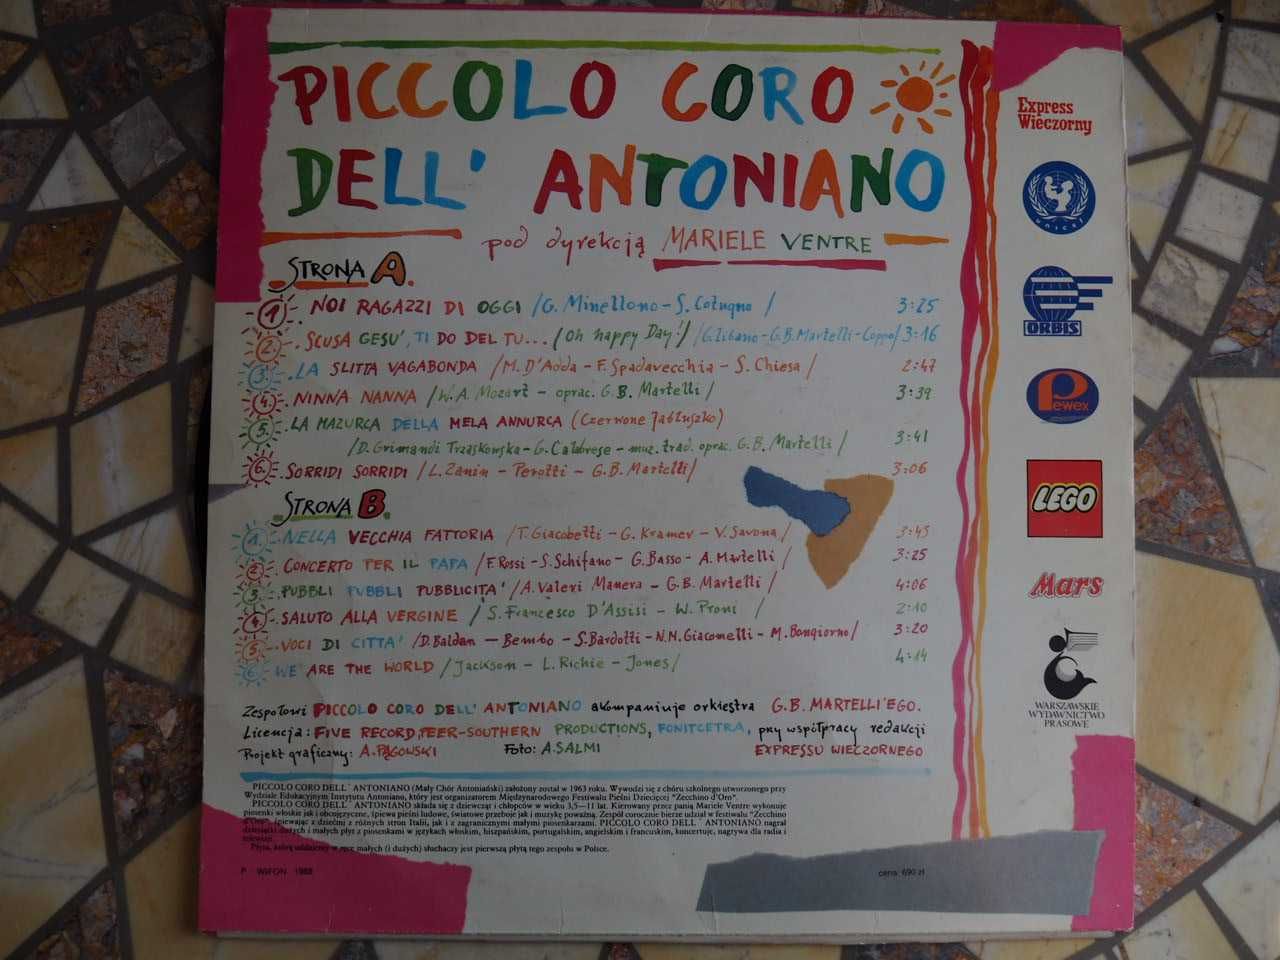 PICCOLO CORO
DELL' ANTONIANO
pod dyrekcją MARIELE VENTRE
STRONA A.
1. NOI RAGAZZI DI OGGI /G. Minellono - S. Cotugno / 3:25
2. SCUSA GESU', TI DO DEL TU... /Oh happy Day!/ /G. Libano - G.B. Martelli - Coppo/ 3:16
3. LA SLITTA VAGABONDA /M. D'Adda - F. Spadavecchia - S. Chiesa/ 2:47
4. NINNA NANNA /W.A. Mozart - oprac. G.B. Martelli/ 3:39
5. LA MAZURCA DELLA MELA ANNURCA (Czerwone Jabłuszko)
/D. Grimandi Trzaskowska - G. Calabrese - muz. trad. oprac. G.B. Martelli/ 3:41
6. SORRIDI SORRIDI /L. Zanin - Perotti - G.B. Martelli/ 3:06
STRONA B.
1. NELLA VECCHIA FATTORIA /T. Giacobetti - G. Kramer - V. Savona/ 3:45
2. CONCERTO PER IL PAPA /F. Rossi - S. Schifano - G. Basso - A. Martelli/ 3:25
3. PUBBLI PUBBLI PUBBLICITA' /A. Valeri Manera - G.B. Martelli/ 4:06
4. SALUTO ALLA VERGINE /S. Francesco D'Assisi - W. Proni / 2:10
5. VOCI DI CITTA' /D. Baldan - Bembo - S. Bardotti - N.N. Giacomelli - M. Bongiorno/ 3:20
6. WE ARE THE WORLD /Jackson - L. Richie - Jones/ 4:14
Zespołowi PICCOLO CORO DELL' ANTONIANO akompaniuje orkiestra G.B. MARTELLI'EGO.
Licencja: FIVE RECORD, PEER-SOUTHERN PRODUCTIONS, FONITCETRA, przy współpracy redakcji
Projekt graficzny: A. PĄGOWSKI Foto: A. SALMI EXPRESSU WIECZORNEGO
PICCOLO CORO DELL' ANTONIANO (Mały Chór Antoniański) założony został w 1963 roku. Wywodzi się z chóru szkolnego utworzonego przy
Wydziale Edukacyjnym Instytutu Antoniano, który jest organizatorem Międzynarodowego Festiwalu Pieśni Dziecięcej "Zecchino d'Oro".
PICCOLO CORO DELL' ANTONIANO składa się z dziewcząt i chłopców w wieku 3,5—11 lat. Kierowany przez panią Mariele Ventre wykonuje
piosenki włoskie jak i obcojęzyczne, śpiewa pieśni ludowe, światowe przeboje jak i muzykę poważną. Zespół corocznie bierze udział w festiwalu "Zecchino
d'Oro" śpiewając z dziećmi z różnych stron Italii, jak i z zagranicznymi małymi piosenkarzami. PICCOLO CORO DELL' ANTONIANO nagrał
dziesiątki dużych i małych płyt z piosenkami w językach włoskim, hiszpańskim, portugalskim, angielskim i francuskim, koncertuje, nagrywa dla radia i
telewizji.
Płyta, którą oddajemy w ręce małych (i dużych) słuchaczy jest pierwszą płytą tego zespołu w Polsce.
P WIFON 1988
cena: 690 zł
Express
Wieczorny
unicef
ORBIS
Pewex
LEGO
Mars
WARSZAWSKIE
WYDAWNICTWO
PRASOWE